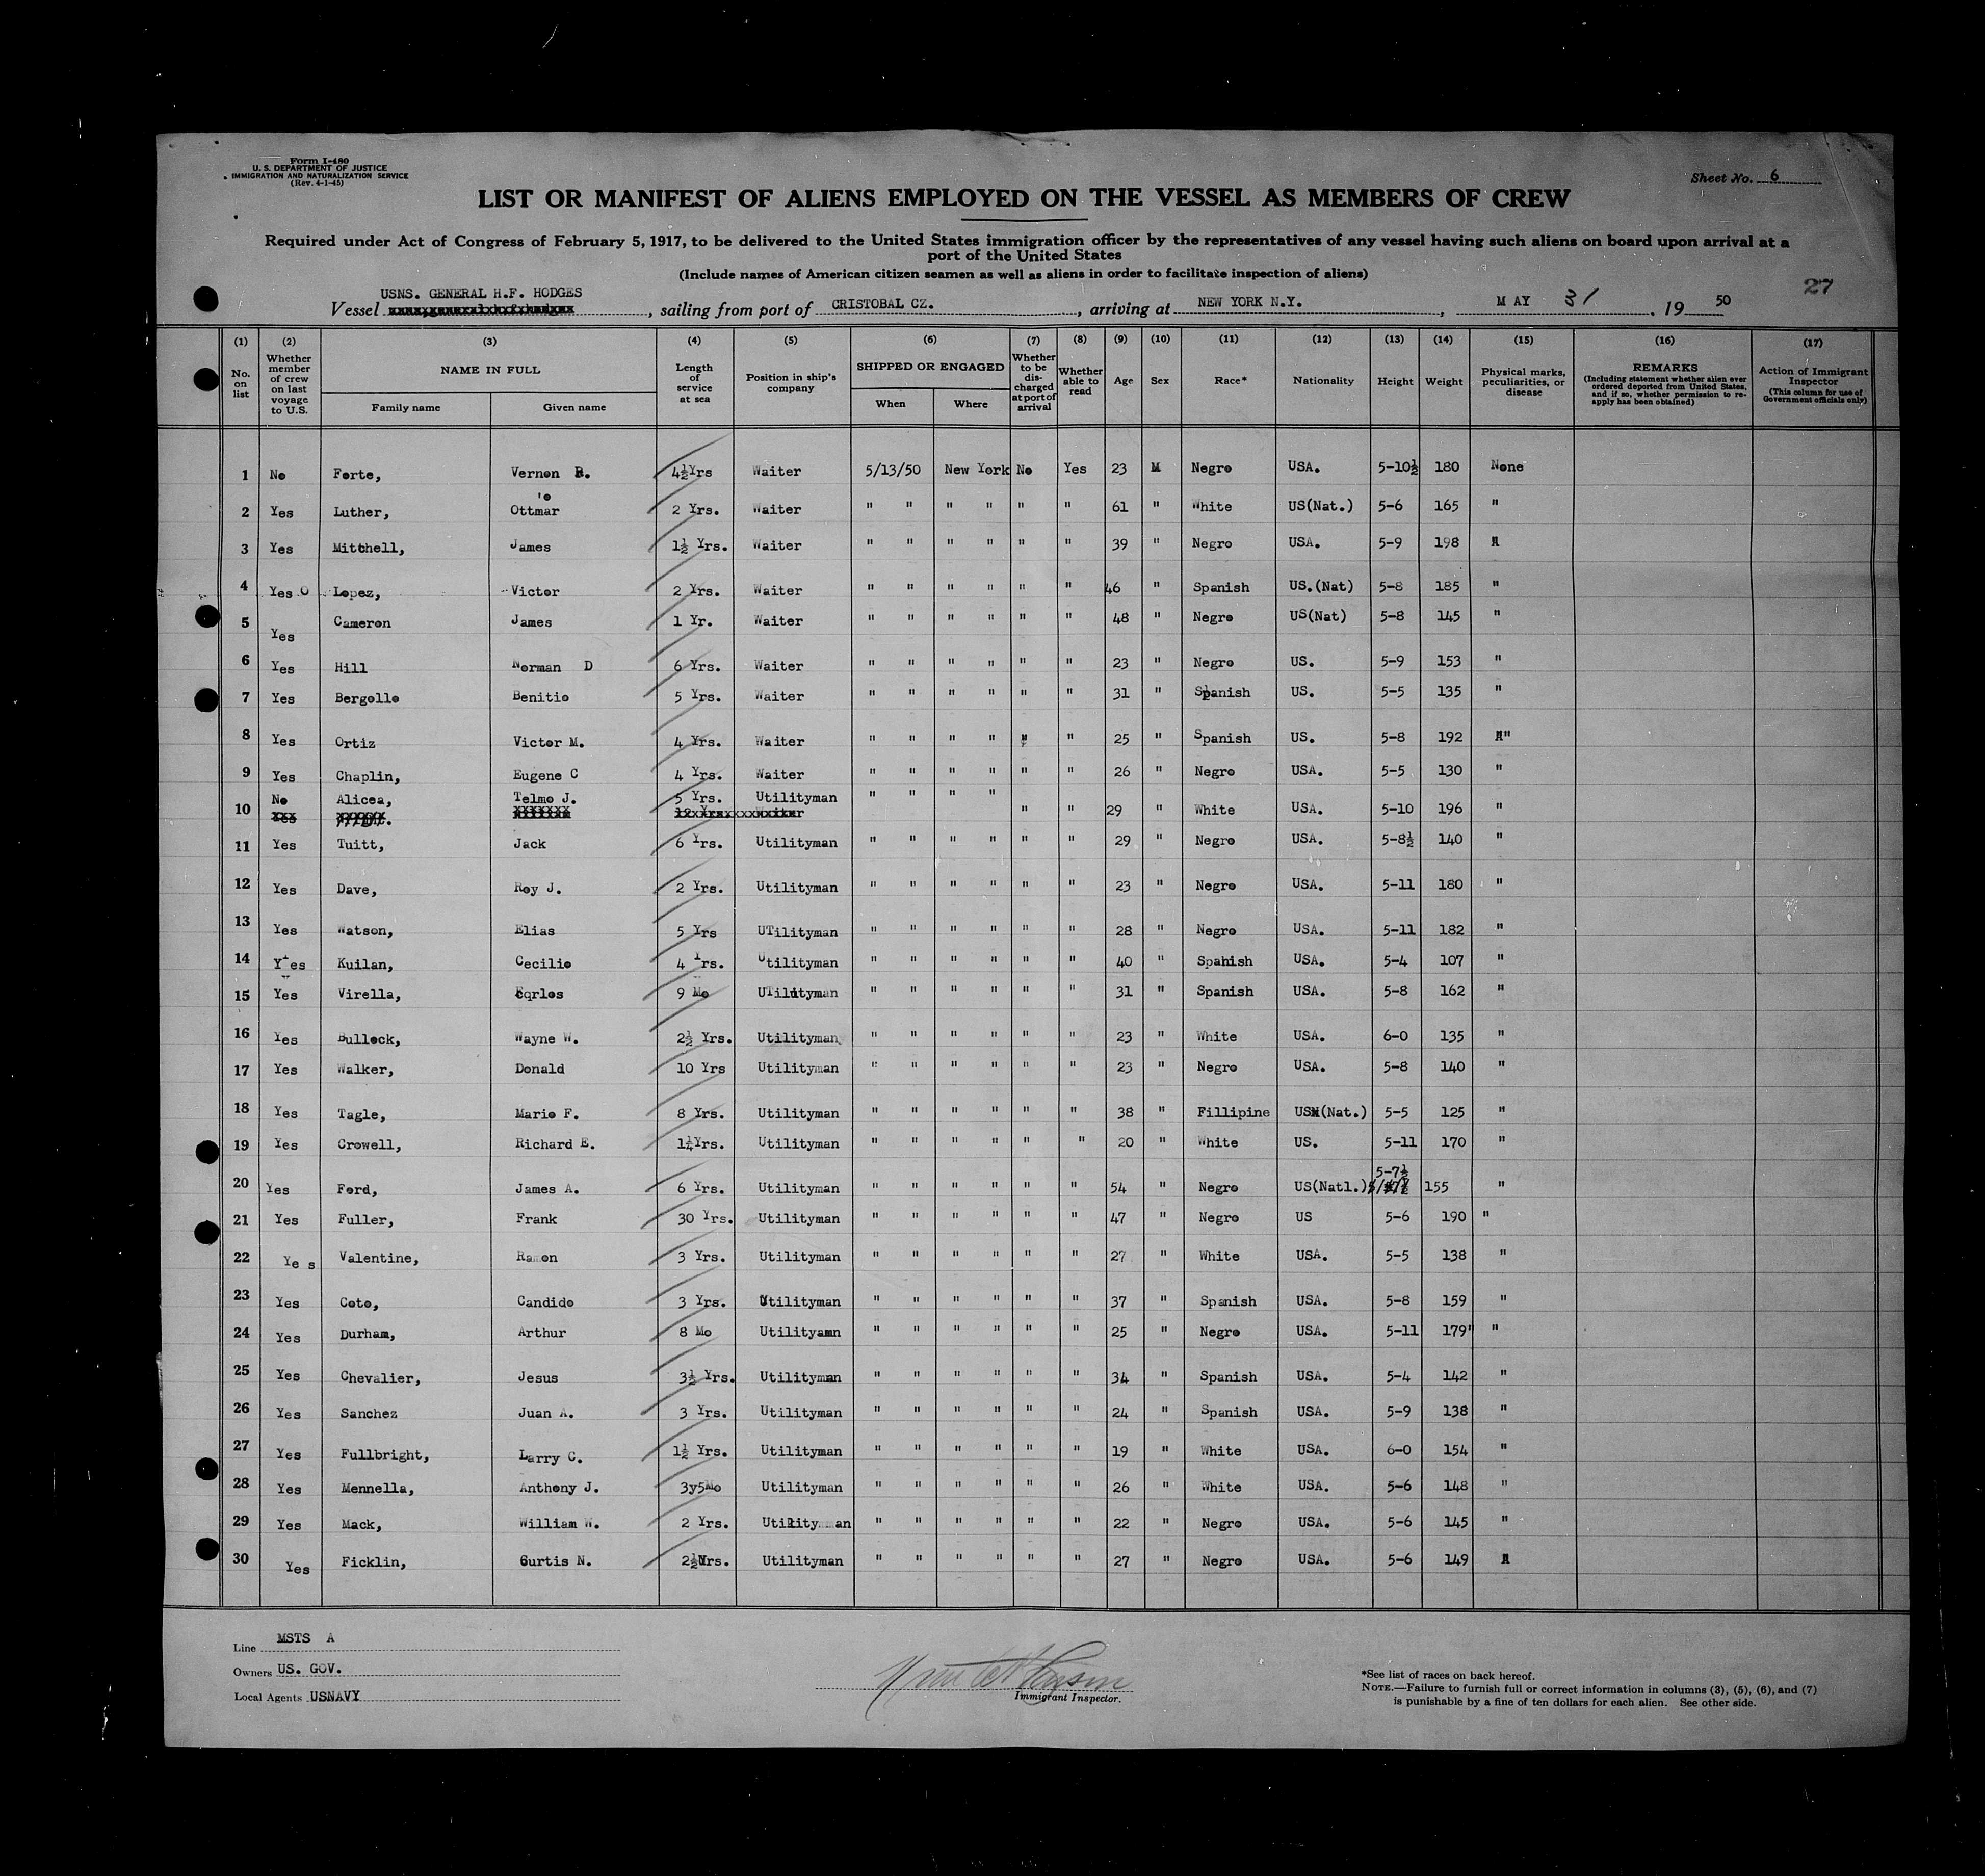 Form I-480
U. S. DEPARTMENT OF JUSTICE
IMMIGRATION AND NATURALIZATION SERVICE
(Rev. 4-1-45)
Sheet No. 6
LIST OR MANIFEST OF ALIENS EMPLOYED ON THE VESSEL AS MEMBERS OF CREW
Required under Act of Congress of February 5, 1917, to be delivered to the United States immigration officer by the representatives of any vessel having such aliens on board upon arrival at a
port of the United States
(Include names of American citizen seamen as well as aliens in order to facilitate inspection of aliens)
27
USNS. GENERAL H.F. HODGES
Vessel , sailing from port of CRISTOBAL CZ. , arriving at NEW YORK N.Y. , M AY 31 , 19 50
(1) No. on list (2) Whether member of crew on last voyage to U.S. (3) NAME IN FULL Family name Given name (4) Length of service at sea (5) Position in ship's company (6) SHIPPED OR ENGAGED When Where (7) Whether to be dis-charged at port of arrival (8) Whether able to read (9) Age (10) Sex (11) Race* (12) Nationality (13) Height (14) Weight (15) Physical marks, peculiarities, or disease (16) REMARKS (Including statement whether alien ever ordered deported from United States, and if so, whether permission to re-apply has been obtained) (17) Action of Immigrant Inspector (This column for use of Government officials only)
1 No Forte, Vernon R. 4½Yrs Waiter 5/13/50 New York No Yes 23 M Negro USA. 5-10½ 180 None
2 Yes Luther, Ottmar 2 Yrs. Waiter " " " " " " 61 " White US(Nat.) 5-6 165 "
3 Yes Mitchell, James 1½ Yrs. Waiter " " " " " " 39 " Negro USA. 5-9 198 "
4 Yes O Lopez, Victor 2 Yrs. Waiter " " " " " " 46 " Spanish US.(Nat) 5-8 185 "
5 Yes Cameron James 1 Yr. Waiter " " " " " " 48 " Negro US(Nat) 5-8 145 "
6 Yes Hill Norman D 6 Yrs. Waiter " " " " " " 23 " Negro US. 5-9 153 "
7 Yes Bergollo Benitio 5 Yrs. Waiter " " " " " " 31 " Spanish US. 5-5 135 "
8 Yes Ortiz Victor M. 4 Yrs. Waiter " " " " " " 25 " Spanish US. 5-8 192 "
9 Yes Chaplin, Eugene C 4 Yrs. Waiter " " " " " " 26 " Negro USA. 5-5 130 "
10 No Alicea, Telmo J. 5 Yrs. Utilityman " " " " " " 29 " White USA. 5-10 196 "
11 Yes Tuitt, Jack 6 Yrs. Utilityman " " " " " " 29 " Negro USA. 5-8½ 140 "
12 Yes Dave, Roy J. 2 Yrs. Utilityman " " " " " " 23 " Negro USA. 5-11 180 "
13 Yes Watson, Elias 5 Yrs UTilityman " " " " " " 28 " Negro USA. 5-11 182 "
14 Yes Kuilan, Cecilio 4 Yrs. Utilityman " " " " " " 40 " Spanish USA. 5-4 107 "
15 Yes Virella, 9 Mo UTilityman " " " " " " 31 " Spanish USA. 5-8 162 "
16 Yes Bullock, Wayne W. 2½ Yrs. Utilityman " " " " " " 23 " White USA. 6-0 135 "
17 Yes Walker, Donald 10 Yrs Utilityman " " " " " " 23 " Negro USA. 5-8 140 "
18 Yes Tagle, Mario F. 8 Yrs. Utilityman " " " " " " 38 " Fillipine US(Nat.) 5-5 125 "
19 Yes Crowell, Richard E. 1¼Yrs. Utilityman " " " " " " 20 " White US. 5-11 170 "
20 Yes Ford, James A. 6 Yrs. Utilityman " " " " " " 54 " Negro US(Natl.) 5-7½ 155 "
21 Yes Fuller, Frank 30 Yrs. Utilityman " " " " " " 47 " Negro US 5-6 190 "
22 Yes Valentine, Ramon 3 Yrs. Utilityman " " " " " " 27 " White USA. 5-5 138 "
23 Yes Coto, Candido 3 Yrs. Utilityman " " " " " " 37 " Spanish USA. 5-8 159 "
24 Yes Durham, Arthur 8 Mo Utilityamn " " " " " " 25 " Negro USA. 5-11 179" "
25 Yes Chevalier, Jesus 3½ Yrs. Utilityman " " " " " " 34 " Spanish USA. 5-4 142 "
26 Yes Sanchez Juan A. 3 Yrs. Utilityman " " " " " " 24 " Spanish USA. 5-9 138 "
27 Yes Fullbright, Larry C. 1½ Yrs. Utilityman " " " " " " 19 " White USA. 6-0 154 "
28 Yes Mennella, Anthony J. 3y5Mo Utilityman " " " " " " 26 " White USA. 5-6 148 "
29 Yes Mack, William W. 2 Yrs. Utilityman " " " " " " 22 " Negro USA. 5-6 145 "
30 Yes Ficklin, Curtis N. 2½Yrs. Utilityman " " " " " " 27 " Negro USA. 5-6 149 "
Line MSTS A
Owners US. GOV.
Local Agents USNAVY
Immigrant Inspector.
*See list of races on back hereof.
NOTE.—Failure to furnish full or correct information in columns (3), (5), (6), and (7)
is punishable by a fine of ten dollars for each alien. See other side.